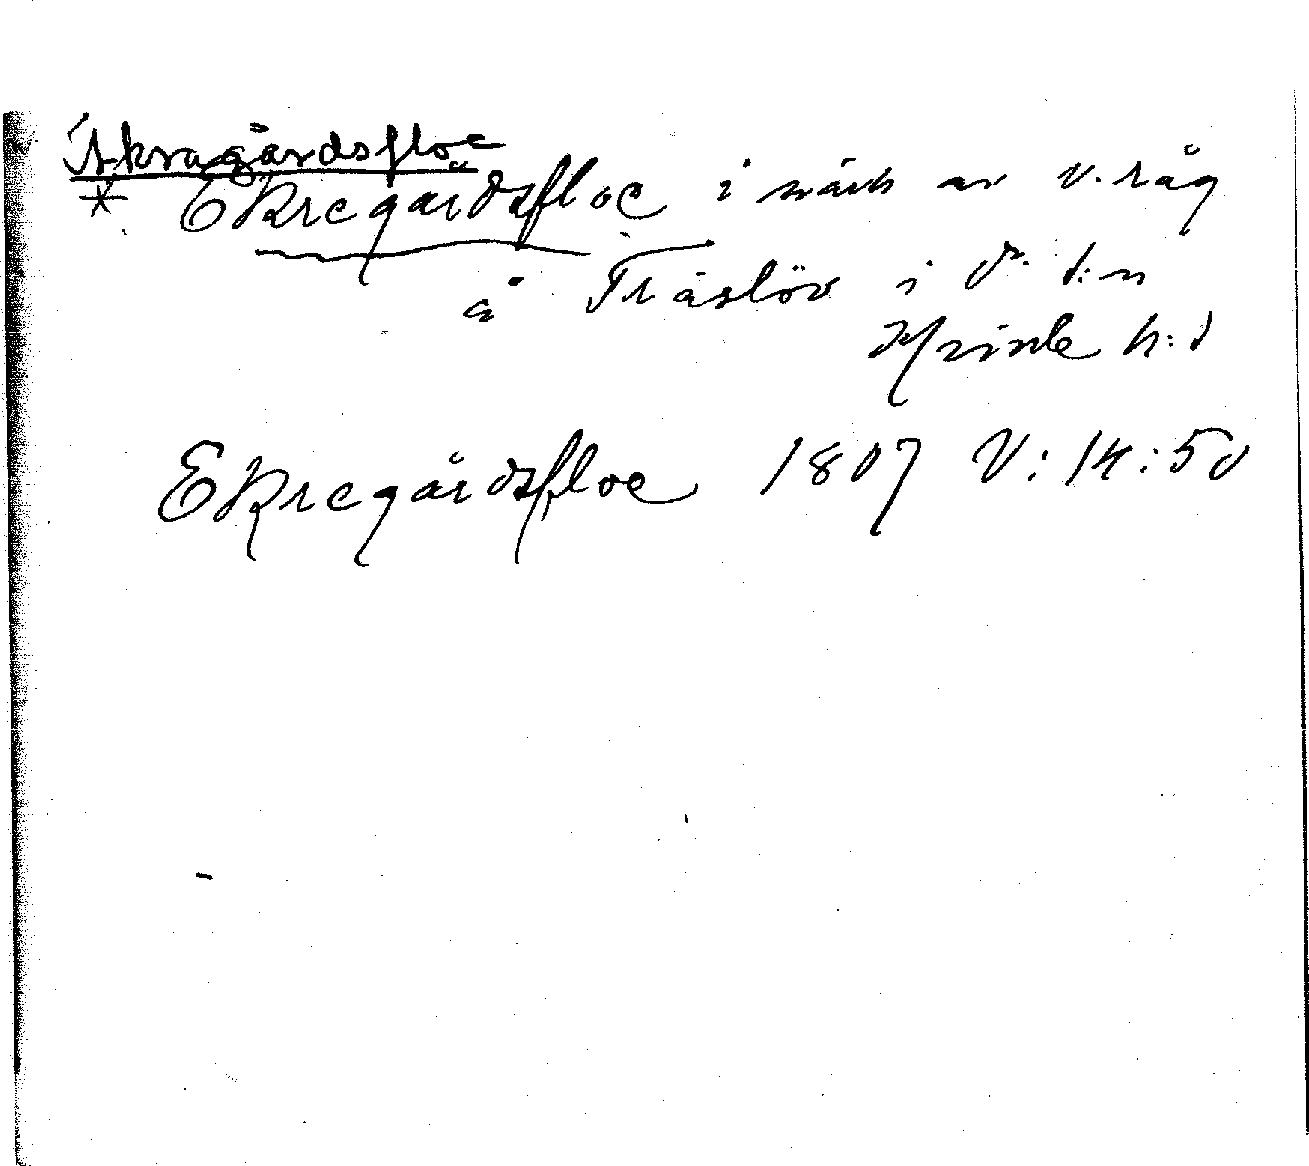 Åkragårdsfloe
* Ekregärdsfloe i närh av v. råg
å Träslöv i d. l:n
Himle h:d
Ekregårdsfloe 1807 V:14:50